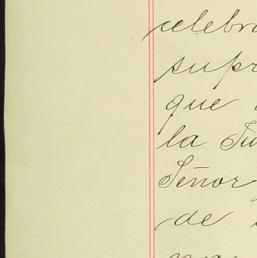 celebra
supr
que
la Ju
Señor
de